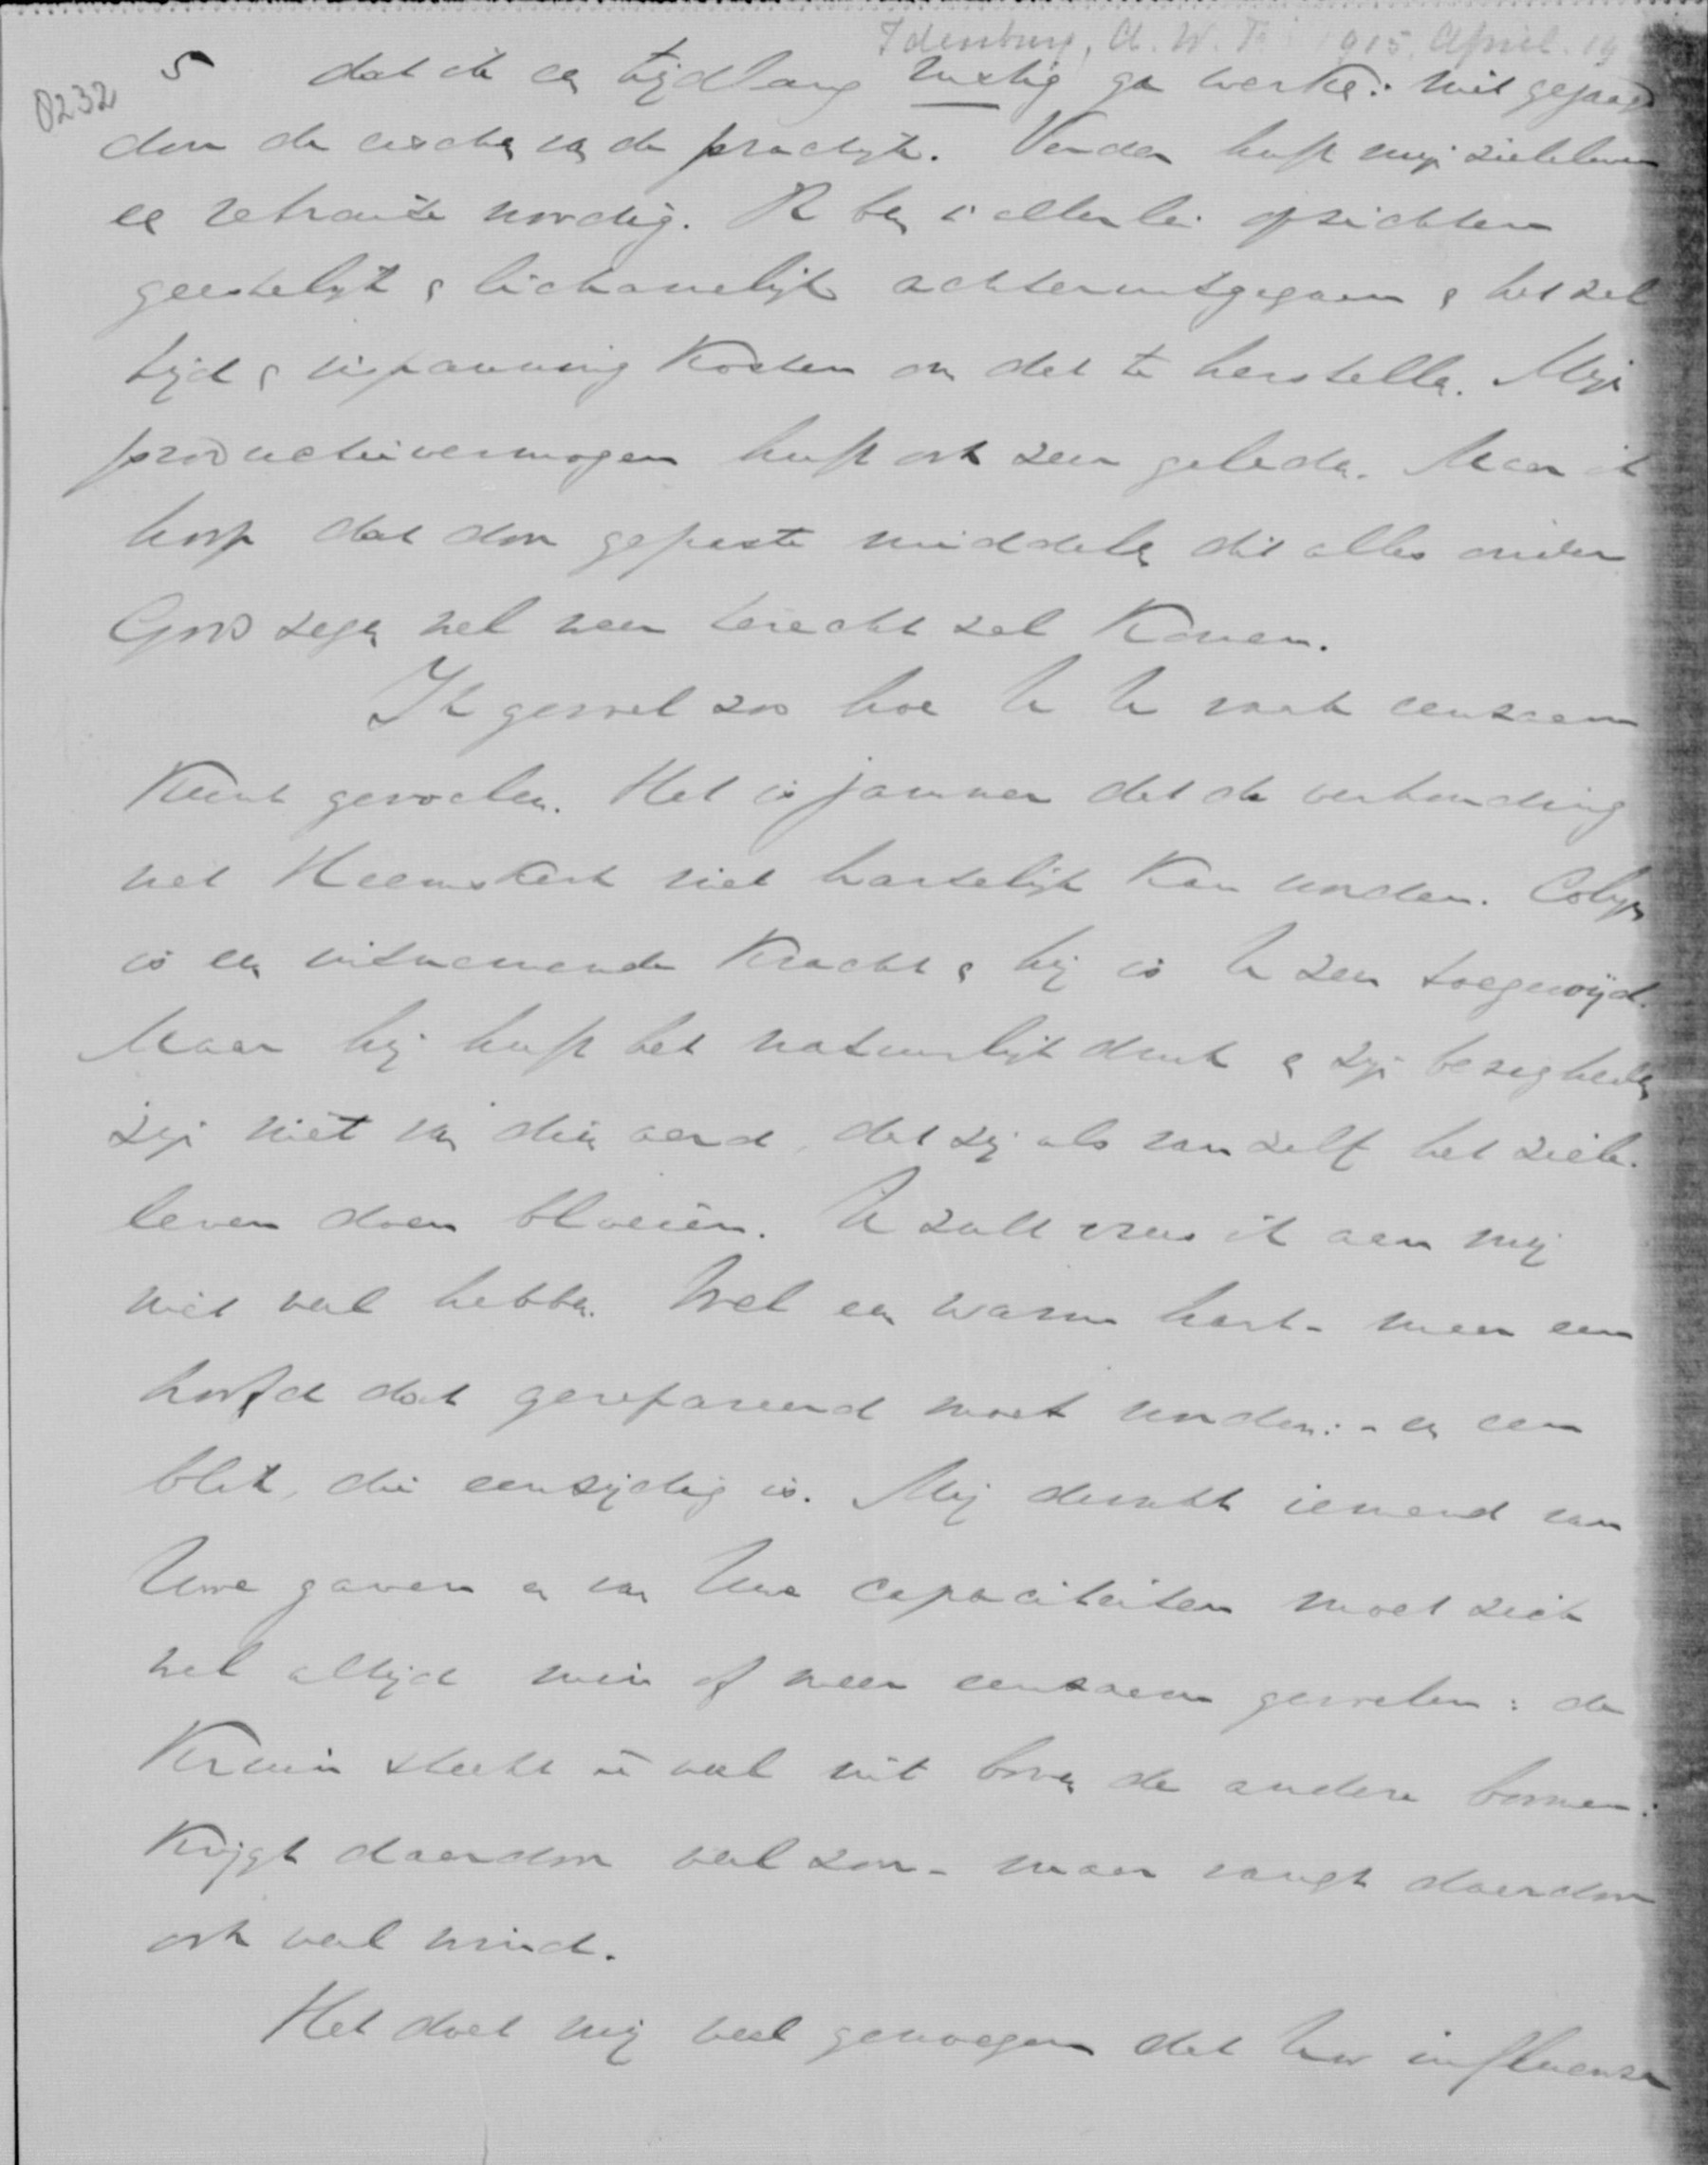 Idenburg, A. W. F. 1915, April. 19
0232
5 dat ik een tijdlang rustig ga werken: niet gejaagd
door de eischen van de practijk. Verder heeft mijn zieleleven
een retraite noodig. Ik ben in allerlei opzichten
geestelijk & lichamelijk achteruitgegaan & het zal
tijd & inspanning kosten om dat te herstellen. Mijn
productievermogen heeft ook zeer geleden. Maar ik
hoop dat door gepaste middelen dit alles onder
Gods zegen wel weer terecht zal komen.
Ik gevoel zoo hoe U U vaak eenzaam
kunt gevoelen. Het is jammer dat de verhouding
met Heemskerk niet hartelijk kan worden. Colijn
is een uitnemende kracht & hij is U zeer toegewijd.
Maar hij heeft het natuurlijk druk & zijn bezigheden
zijn niet van dien aard, dat zij als van zelf het ziele-
leven doen bloeien. U zult vrees ik aan mij
niet veel hebben. Wel een warm hart - maar een
hoofd dat gerepareerd moet worden: - en een
blik, die eenzijdig is. Mij dunkt iemand van
Uwe gaven en van Uwe capaciteiten moet zich
wel altijd min of meer eenzaam gevoelen: de
kruin steekt te veel uit boven de andere boomen:
krijgt daardoor veel zon - maar vangt daardoor
ook veel wind.
Het doet mij veel genoegen dat Uw influenza